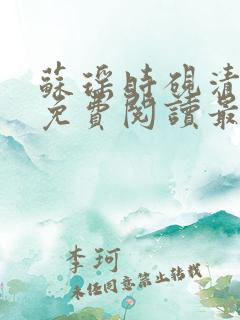 蘇瑤時硯清
免費閱讀最
李珂
未经同意禁止转载